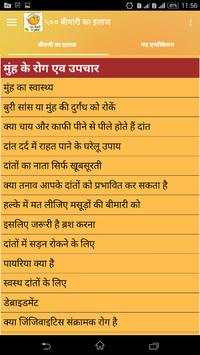 11:56
५०० बीमारी का इलाज
बीमारी का इलाज
नए एप्लीकेशन
मुंह के रोग एव उपचार
मुंह का स्वास्थ्य
बुरी सांस या मुंह की दुर्गंध को रोकें
क्या चाय और काफी पीने से पीले होते हैं दांत
दांत दर्द में राहत पाने के घरेलू उपाय
दांतों का नाता सिर्फ खूबसूरती
क्या तनाव आपके दांतों को प्रभावित कर सकता है
हल्के में मत लीजिए मसूड़ों की बीमारी को
इसलिए जरूरी है ब्रश करना
दांतों में सड़न रोकने के लिए
पायरिया क्या है
स्वस्थ दांतों के लिए
डेब्राइडमेंट
क्या जिंजिवाइटिस संक्रामक रोग है